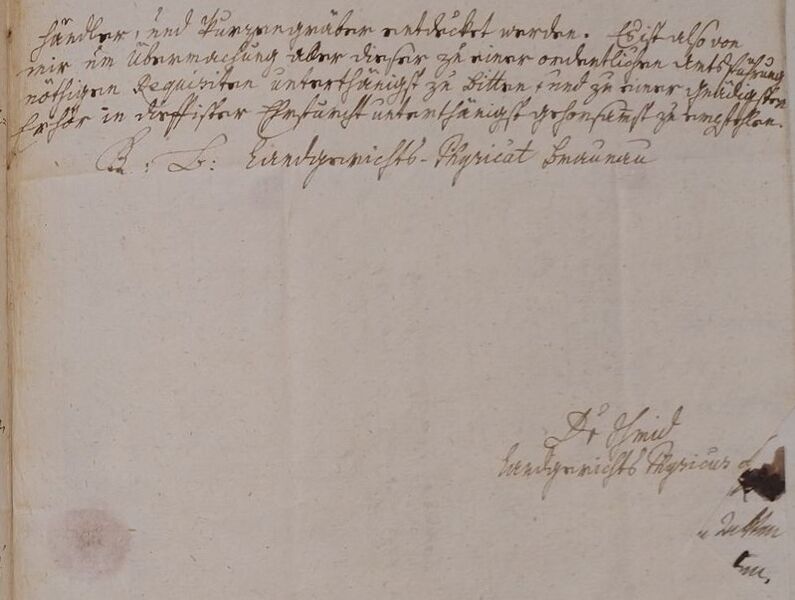 händler, und Wurzengräber entdecket werden. Es ist also von
mir um Übermachung aller dieser zu einer ordentlichen Amtsführung
nöthigen Requisiten unterthänigst zu bitten, und zu einer gnädigsten
Erhör in tieffister Ehrfurcht unterthänigst gehorsamst zu empfehlen.
K: K: Landgerichts-Physicat Braunau
Dr Schmid
Landgerichts Physicus